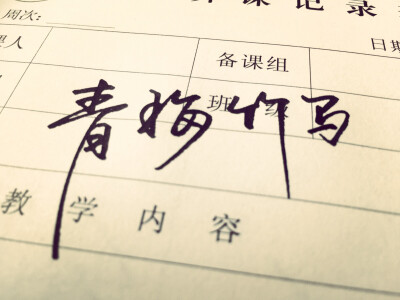 课记录
周次: 日期
人 备课组
班级
青梅竹马
教学内容